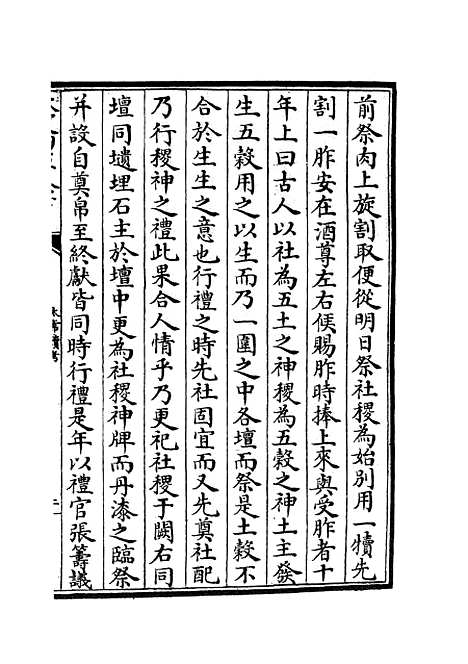 前祭肉上旋割取便從明日祭社稷為始別用一犢先
割一胙安在酒尊左右候賜胙時捧上來與受胙者十
年上曰古人以社為五土之神稷為五穀之神土主發
生五穀用之以生而乃一圍之中各壇而祭是土穀不
合於生生之意也行禮之時先社固宜而又先奠社配
乃行稷神之禮此果合人情乎乃更祀社稷于闕右同
壇同壝埋石主於壇中更為社稷神牌而丹漆之臨祭
并設自奠帛至終獻皆同時行禮是年以禮官張籌議